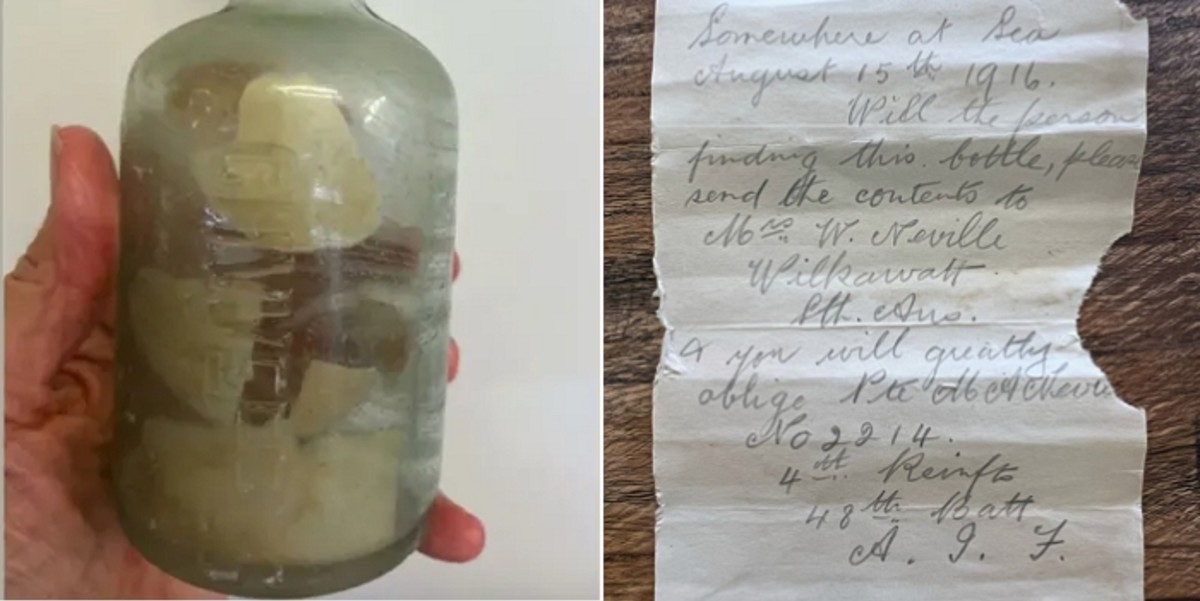 Somewhere at Sea
August 15th 1916.
Will the person
finding this bottle, pleas
send the contents to
Mrs. W. Neville
Wilkawatt
Sth. Aus.
& you will greatly
oblige Pte M A Nevi
No 2214.
4th Reinfts
48th Batt
A. I. F.